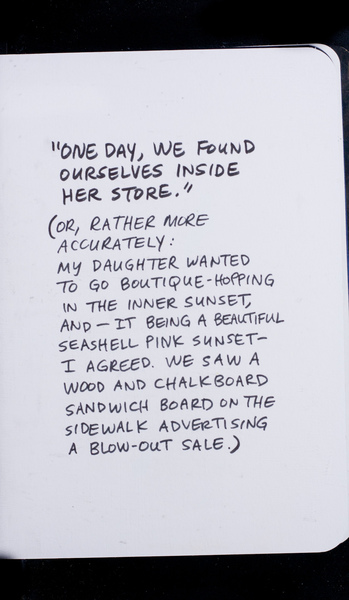 "ONE DAY, WE FOUND
OURSELVES INSIDE
HER STORE."
(OR, RATHER MORE
ACCURATELY:
MY DAUGHTER WANTED
TO GO BOUTIQUE-HOPPING
IN THE INNER SUNSET,
AND — IT BEING A BEAUTIFUL
SEASHELL PINK SUNSET—
I AGREED. WE SAW A
WOOD AND CHALKBOARD
SANDWICH BOARD ON THE
SIDEWALK ADVERTISING
A BLOW-OUT SALE.)